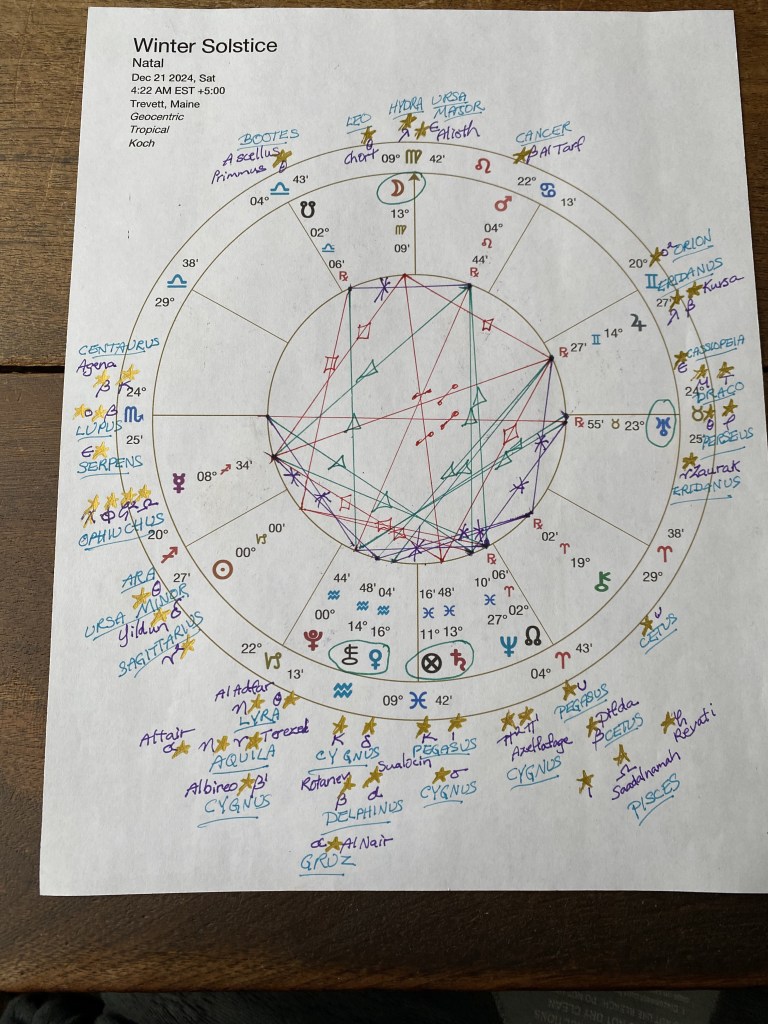 Winter Solstice
Natal
Dec 21 2024, Sat
4:22 AM EST +5:00
Trevett, Maine
Geocentric
Tropical
Koch
BOOTES
Ascellus
Primmus θ
LEO
θ
Chort
HYDRA
λ
URSA
MAJOR
ε Alioth
CANCER
β Al Tarf
09° ♍ 42'
♌
22° ♋ 13'
04° ♎ 43'
☋
02°
♎
06'
℞
☽
13°
♍
09'
♂
04°
♌
44'
℞
38'
♎
29°
20°
♊
27'
ORION
ο²
ERIDANUS
Kursa
λ β
♃
14° ♊ 27' ℞
CENTAURUS
Agena
β κ
24°
♏
25'
ο β
LUPUS
ε
SERPENS
CASSIOPEIA
ε
24°
♉
25'
DRACO
θ
PERSEUS
γ Zaurak
ERIDANUS
♅ 23° ♉ 55' ℞
☿ 08° ♐ 34'
OPHIUCHUS
20°
♐
27'
☉ 00° ♑ 00'
38'
♈
29°
02'
℞
♈
19°
⚷
ARA
θ
URSA MINOR
Yildun δ
SAGITTARIUS
υ
CETUS
22° ♑ 13'
44'
♒
00°
♇
48'
♒
14°
04'
♒
16°
♀
16'
♓
11°
⊗
48'
♓
13°
♄
℞
10'
♓
27°
♆
06'
♈
02°
☊
04° ♈ 43'
♒
09° ♓ 42'
Al Adfar
η θ
LYRA
Attair
α
η γ Tarezed
AQUILA
Albireo β'
CYGNUS
κ δ
CYGNUS
Rotanev
β
Sualocin
α
DELPHINUS
α Al Nair
GRUZ
κ ι
PEGASUS
σ
CYGNUS
π² π'
Azelfafage
CYGNUS
υ
PEGASUS
Difda
β CETUS
η
Revati
ι
Ω
Saadalnamah
PISCES